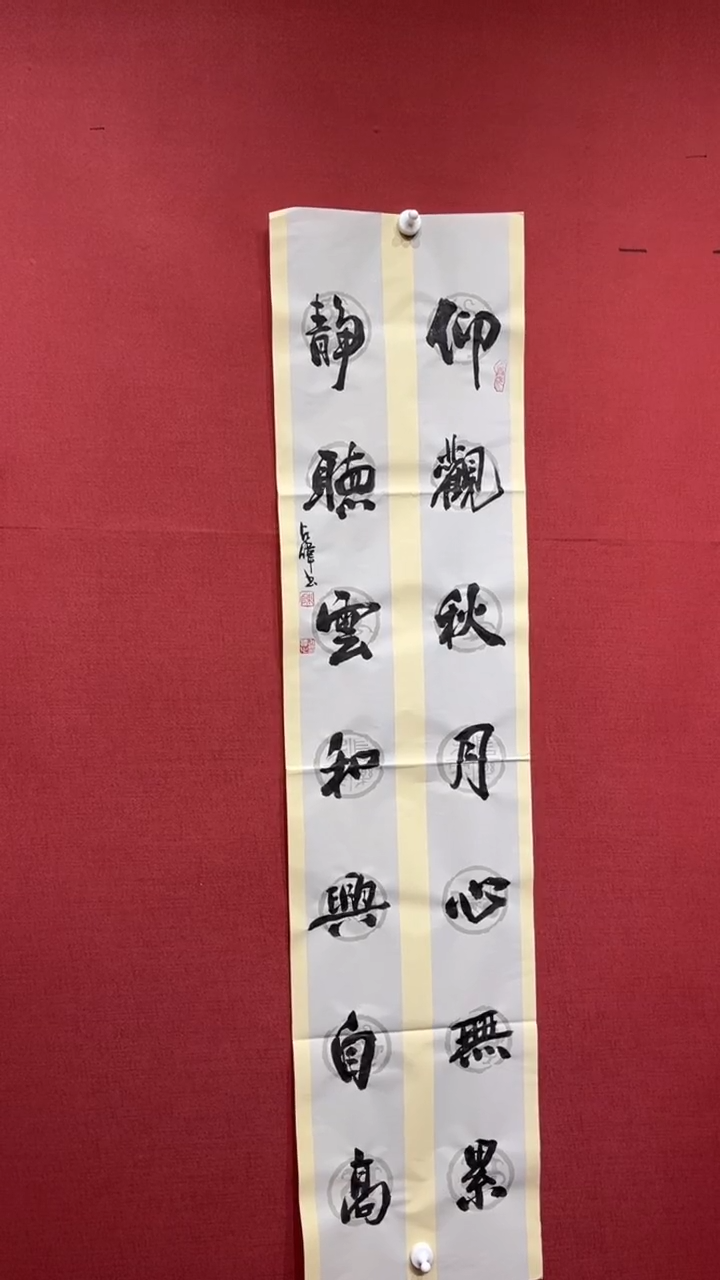 仰觀秋月心無累
静聽雲和興自高